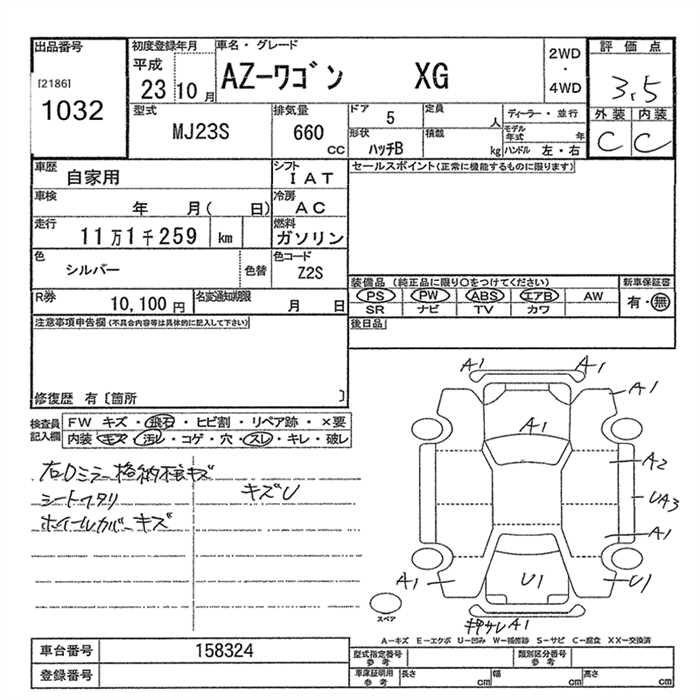 出品番号
[2186]
1032
初度登録年月
平成
23 10月
車名・グレード
AZーワゴン XG
2WD
・
4WD
評価点
3.5
型式
MJ23S
排気量
660
CC
ドア
5
定員
人
形状
ハッチB
積載
kg
ディーラー・並行
モデル
年式
年
ハンドル 左・右
外装 内装
C C
車歴
自家用
シフト
IAT
車検
年 月( 日)
冷房
AC
走行
11万1千259 km
燃料
ガソリン
色
シルバー
色替
色コード
Z2S
R券
10,100円
名変通知期限
月 日
セールスポイント(正常に機能するものに限ります)
装備品(純正品に限り○をつけてください)
新車保証書
PS PW ABS エアB AW
有・無
SR ナビ TV カワ
後日品
注意事項申告欄(不具合内容等は具体的に記入して下さい)
修復歴 有〔箇所 〕
検査員
記入欄
FW キズ・飛石・ヒビ割・リペア跡・×要
内装 キズ・汚レ・コゲ・穴・スレ・キレ・破レ
右Dミラー格納不良キズ
キズU
シートヘタリ
ホイールカバーキズ
A1
A1
A1
A1
A2
UA3
A1
A1
U1
U1
A1
スペア
A-キズ E-エクボ U-凹み W-補修跡 S-サビ C-腐食 XX-交換済
車台番号
158324
登録番号
型式指定番号
参考
類別区分番号
参考
車庫証明用
参考
長さ
cm
幅
cm
高さ
cm